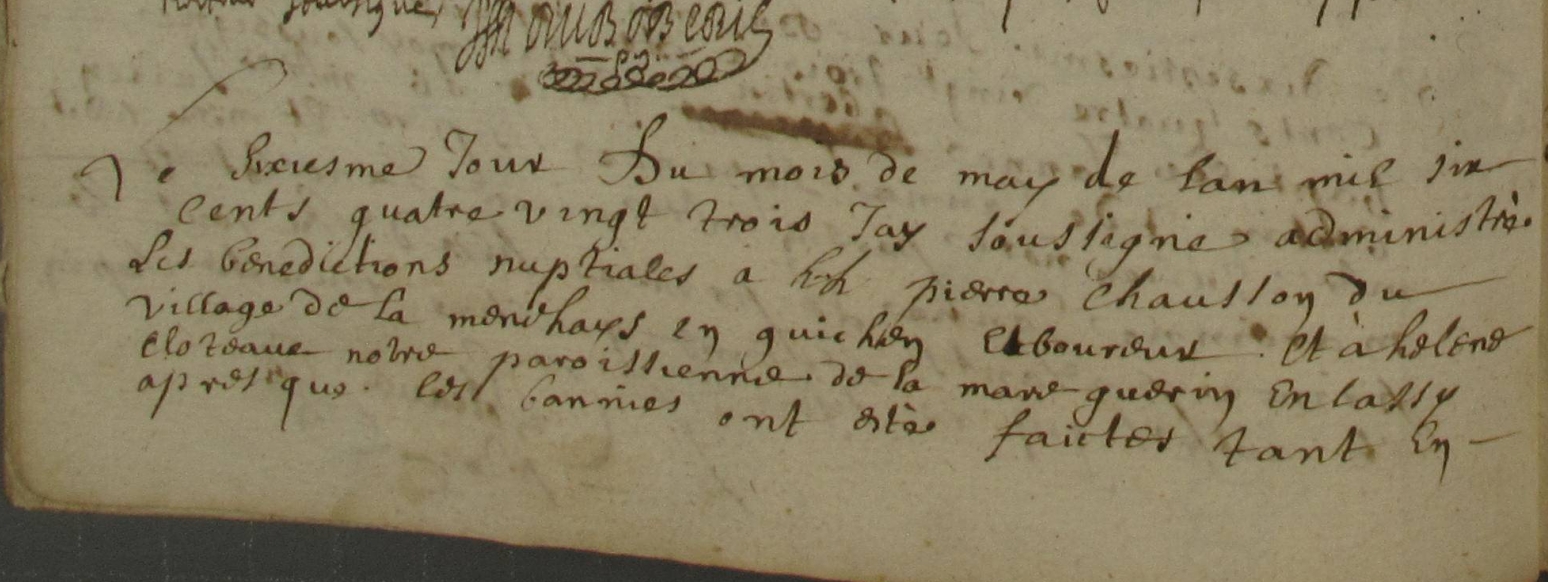 soussigne
Le sixiesme Jour Du mois de may de lan mil six
cents quatre vingt trois Jay soussigne administré
Les benedictions nuptiales a pierre Chausson du
village de la menehays en guichen laboureur et à helene
Cloteaue notre paroissienne de la mare guerin En lassy
apres que les bannies ont estè faictes tant En